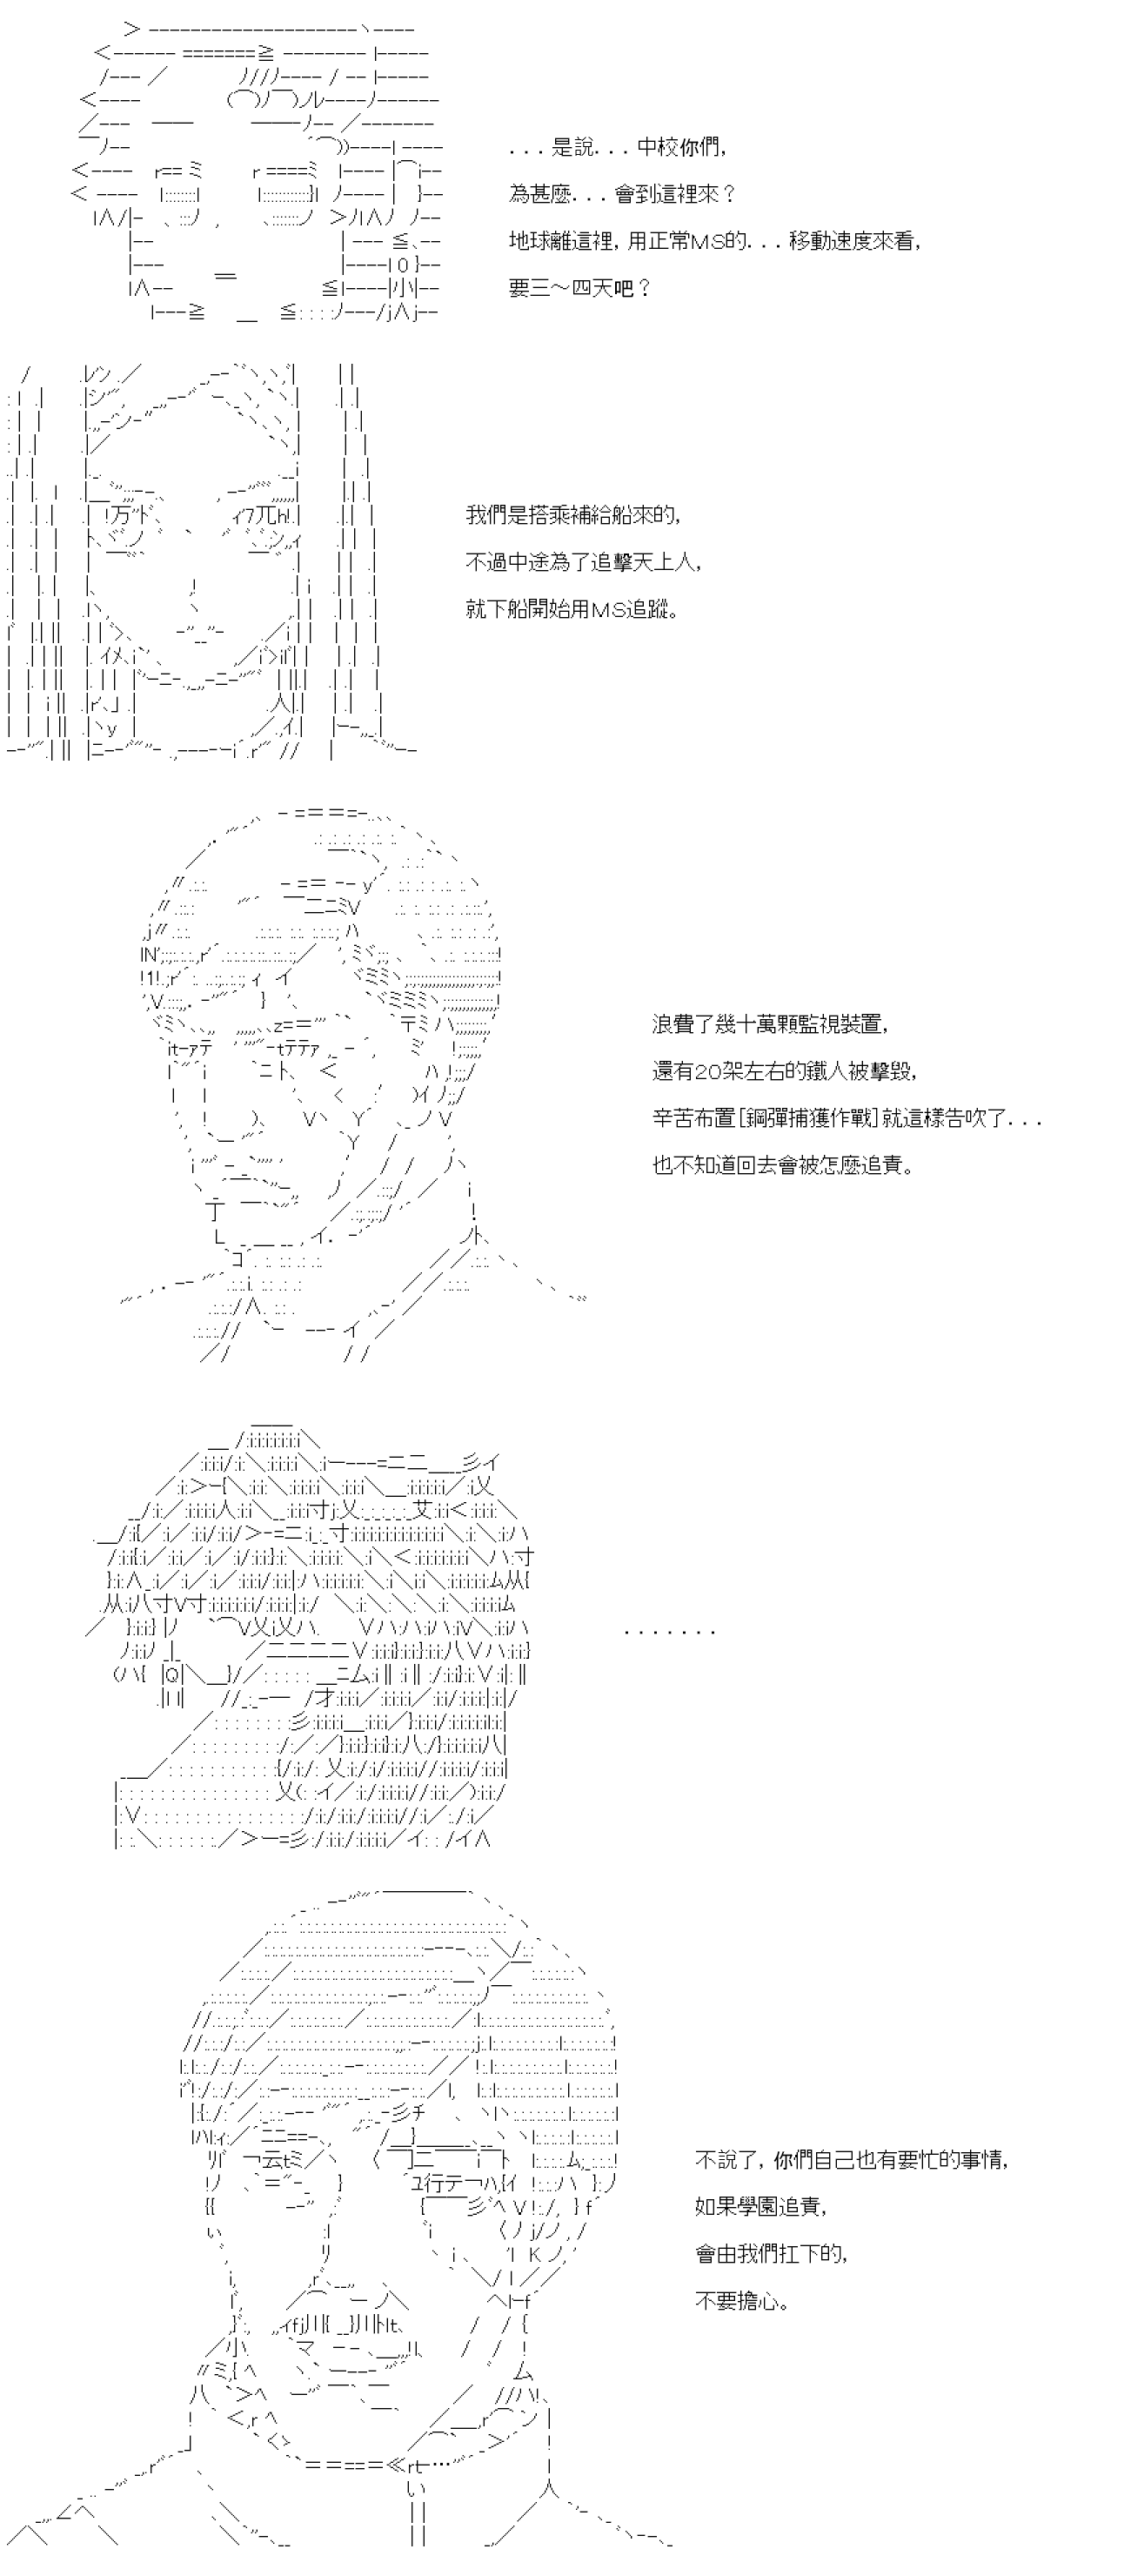 ...是說...中校你們,
為甚麼...會到這裡來？
地球離這裡,用正常MS的...移動速度來看,
要三～四天吧？
我們是搭乘補給船來的,
不過中途為了追擊天上人,
就下船開始用MS追蹤。
浪費了幾十萬顆監視裝置,
還有20架左右的鐵人被擊毀,
辛苦布置[鋼彈捕獲作戰]就這樣告吹了...
也不知道回去會被怎麼追責。
.......
不說了,你們自己也有要忙的事情,
如果學園追責,
會由我們扛下的,
不要擔心。